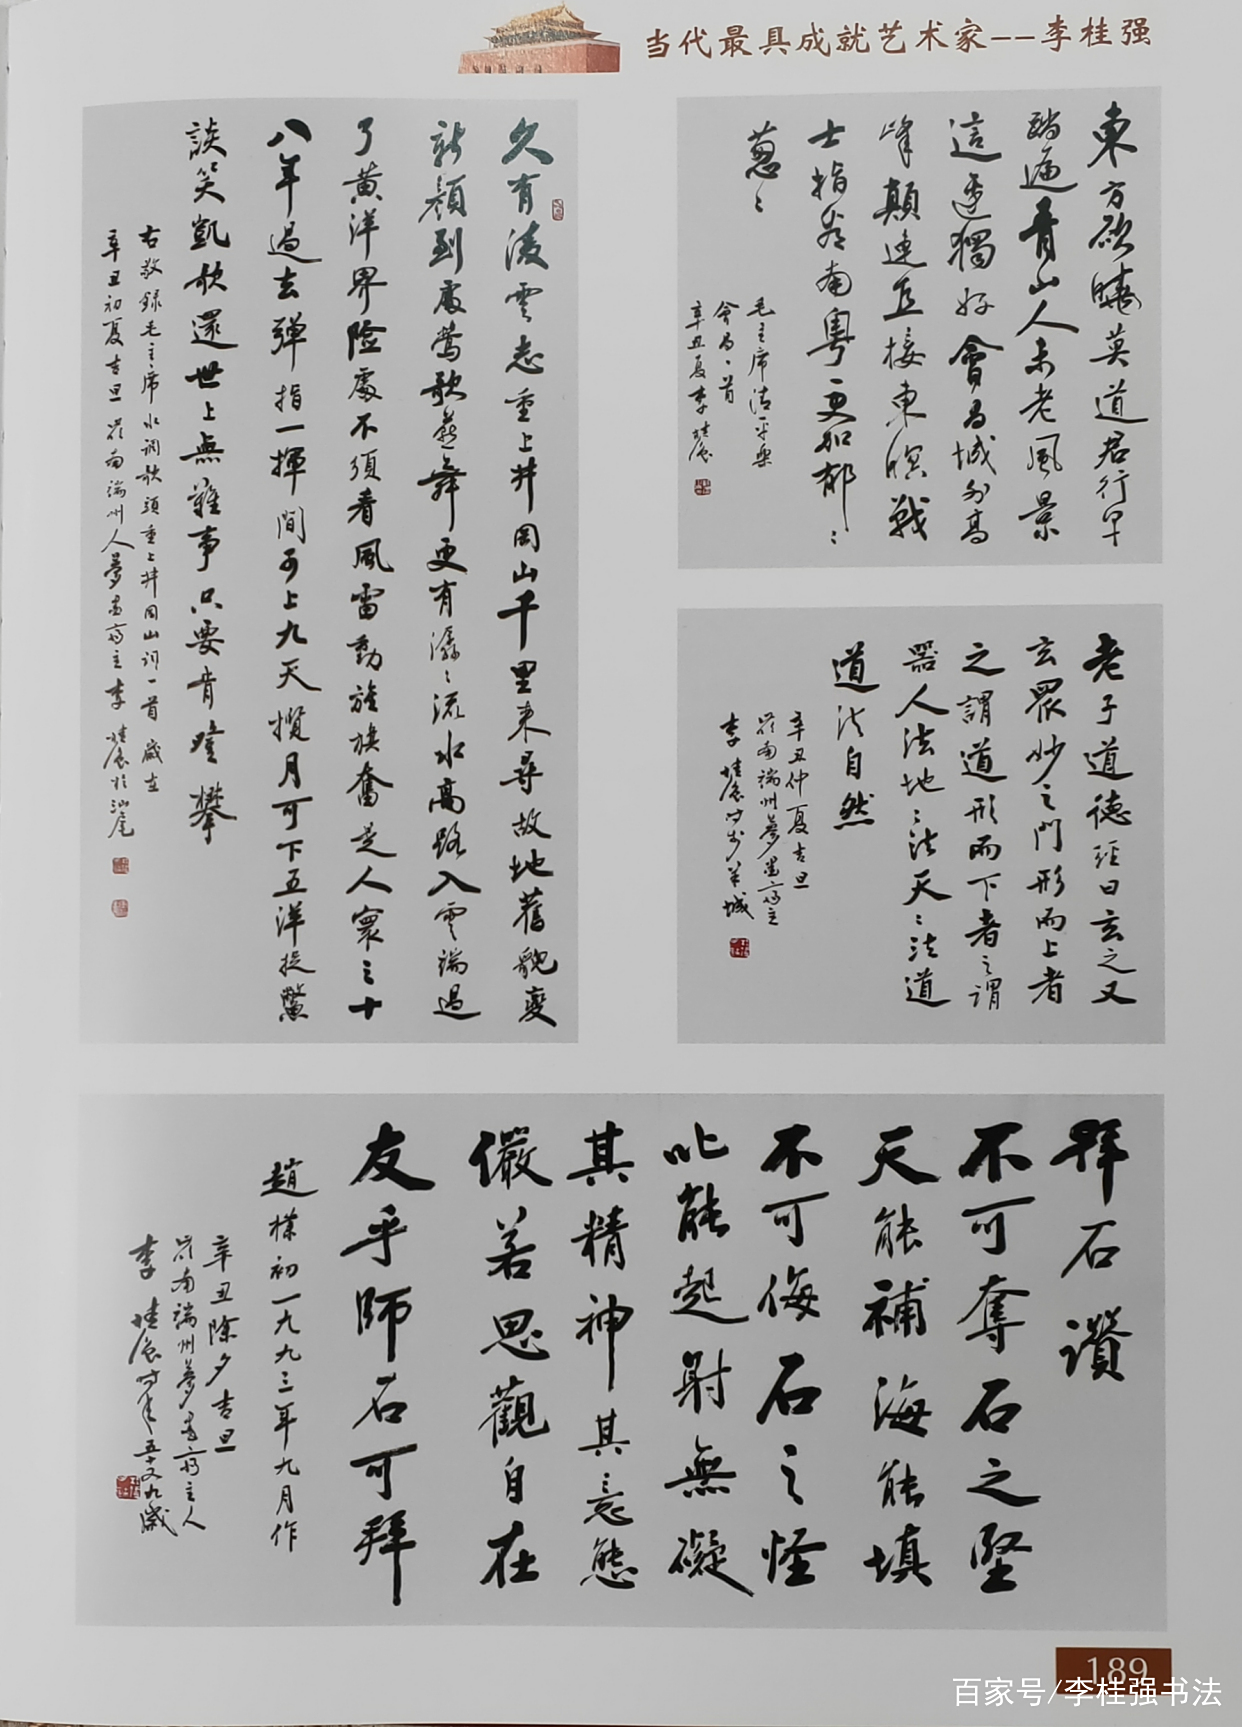 当代最具成就艺术家--李桂强
久有凌雲志重上井岡山千里來尋故地舊貌變
新顏到處鶯歌燕舞更有潺〻流水高路入雲端過
了黃洋界險處不須看風雷動旌旗奮是人寰三十
八年過去彈指一揮間可上九天攬月可下五洋捉鱉
談笑凱歌還世上無難事只要肯登攀
右敬錄毛主席水調歌頭重上井岡山詞一首歲在
辛丑初夏吉旦岭南端州人夢墨齋主李桂强於汕尾
東方欲曉莫道君行早
踏遍青山人未老風景
這邊獨好會昌城外高
峰顛連直接東溟戰
士指看南粵更加郁〻
葱〻
毛主席清平樂
會昌一首
辛丑夏李桂强
老子道德經曰玄之又
玄眾妙之門形而上者
之謂道形而下者之謂
器人法地〻法天〻法道
道法自然
辛丑仲夏吉旦
岭南端州夢墨齋主
李桂强時步羊城
拜石讚
不可奪石之堅
天能補海能填
不可侮石之怪
叱能起射無礙
其精神其意態
儼若思觀自在
友乎師石可拜
趙樸初一九九三年九月作
辛丑除夕吉旦
岭南端州夢墨齋主人
李桂强時年五十又九歲
189
百家号/李桂强书法